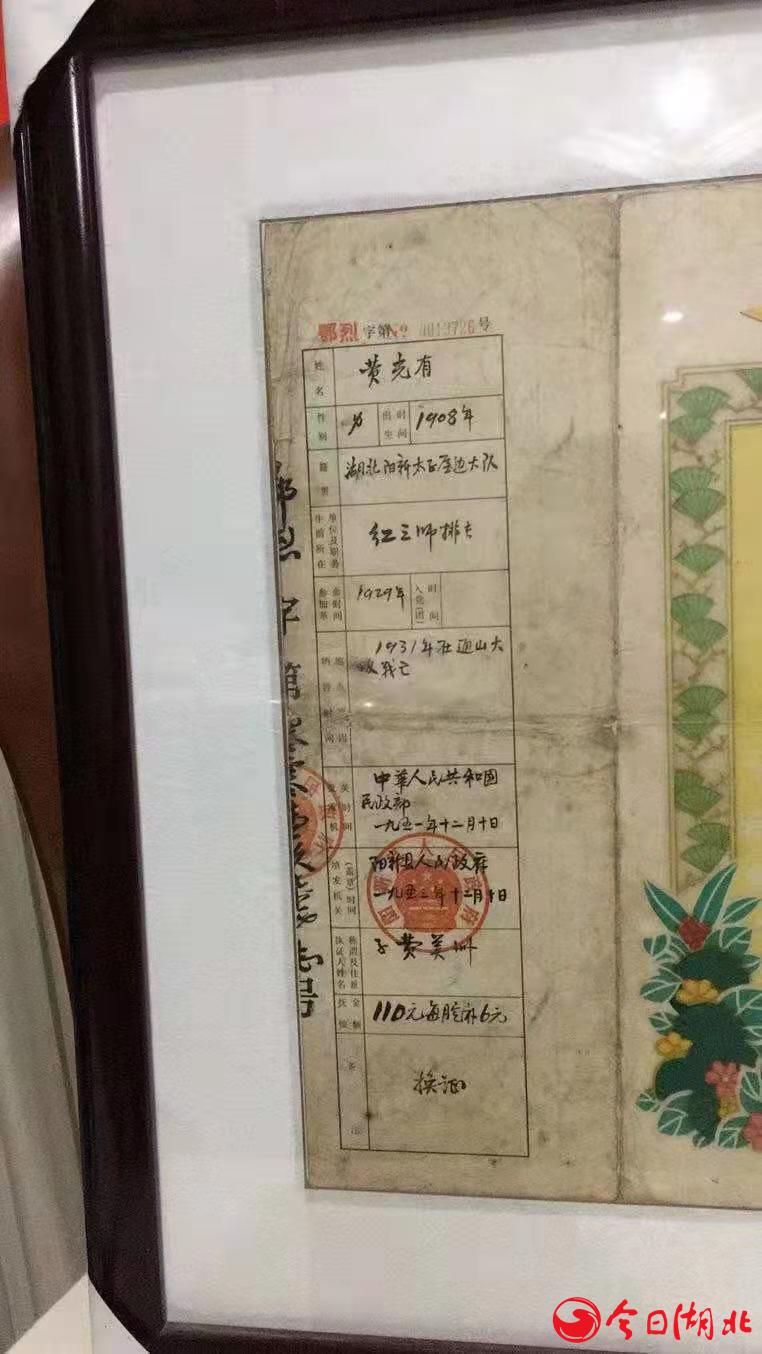 鄂烈 字第№ 0013726号
姓名 费光有
性别 男 出生时间 1908年
籍贯 湖北阳新太子屋边大队
生前所在单位及职务 红三师排长
参加革命时间 1929年 入党(团)时间
1931年在通山大
战亡
批准机关时间 中華人民共和國
民政部
一九五一年十二月十日
填发机关(盖章)时间 阳新县人民政府
一九五三年十二月十日
执证人姓名称谓及住址 子 费美州
抚恤金额 110元每月定补6元
备注 换证
鄂烈字第
号
今日湖北